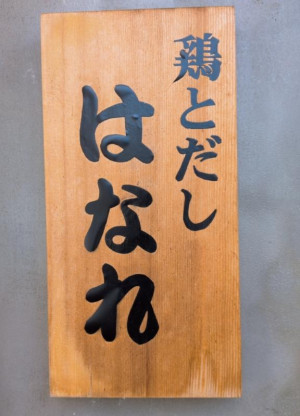 鶏とだし
はなれ